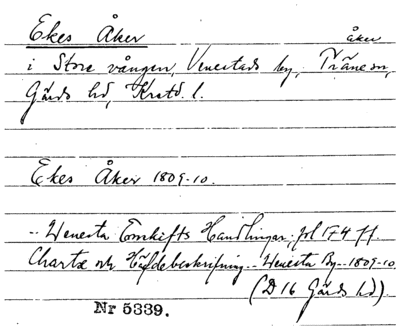 Ekes Åker åker
i Store vången, Venestads by, Träne sn,
Gärds hd, Krstd. l.
Ekes Åker 1809-10.
.. Wenesta Enskifts Handlingar, fol 174 ff.
Charta och Häfdebeskrifning .. Wenesta By .. 1809-10
(D 16 Gärds hd).
Nr 5339.